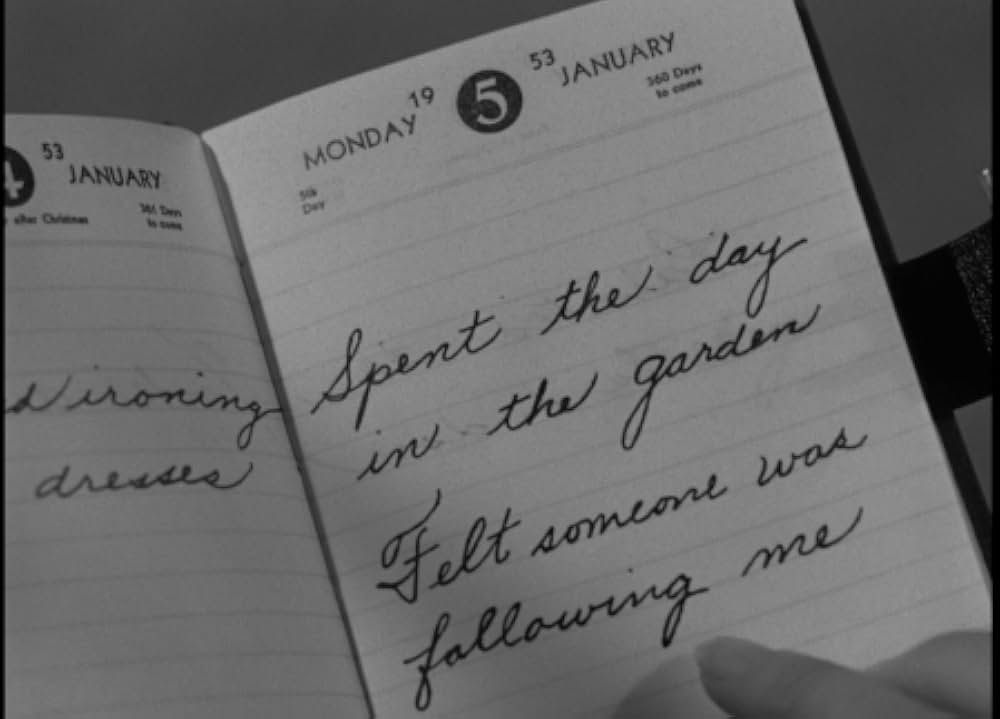 4 53 JANUARY
after Christmas 361 Days to come
ironing
dresses
MONDAY 19 5 53 JANUARY
5th Day
360 Days to come
Spent the day
in the garden
Felt someone was
following me